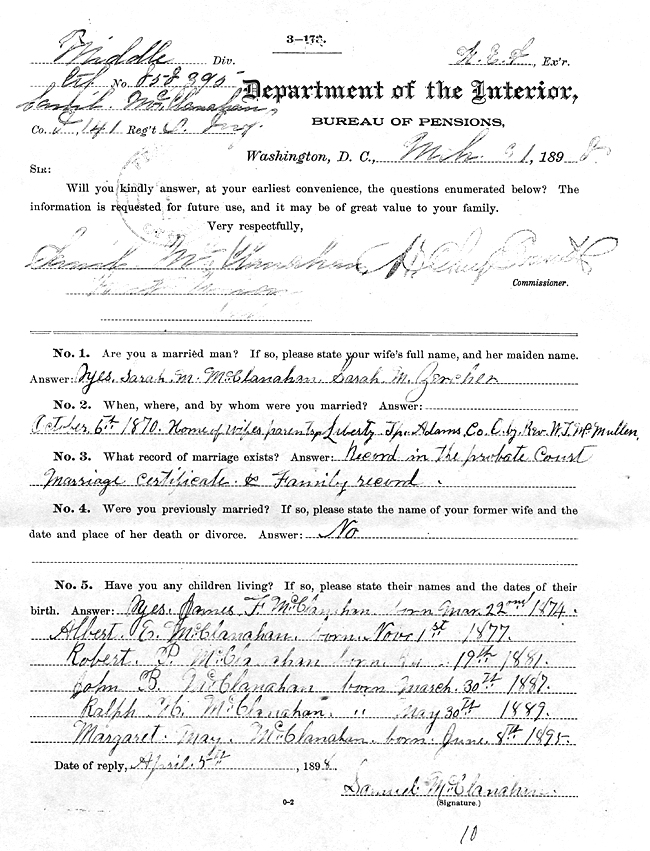 3—173.
Middle Div. , Ex'r.
Ctf. No. 858 395
Samuel McClanahan Department of the Interior,
Co. , 141 Reg't O. Inf. BUREAU OF PENSIONS,
Washington, D. C., Mch. 31, 1898
SIR:
Will you kindly answer, at your earliest convenience, the questions enumerated below? The
information is requested for future use, and it may be of great value to your family.
Very respectfully,
McClanahan
Commissioner.
No. 1. Are you a married man? If so, please state your wife's full name, and her maiden name.
Answer: yes. Sarah M. McClanahan. Sarah M. Zercher
No. 2. When, where, and by whom were you married? Answer:
October 6th 1870. Home of wifes parents, Liberty Tp. Adams Co. O. by Rev. W. J. McMullen
No. 3. What record of marriage exists? Answer: Record in the probate Court
Marriage certificate. & Family record.
No. 4. Were you previously married? If so, please state the name of your former wife and the
date and place of her death or divorce. Answer: No
No. 5. Have you any children living? If so, please state their names and the dates of their
birth. Answer: yes. James F. McClanahan born Mar. 22nd 1874.
Albert E. McClanahan. born. Nov. 1st 1877.
Robert. P. McCla ahan born 19th 1881.
John B. McClanahan born March. 30th 1887.
Ralph McClanahan. " May 30th 1889.
Margaret. May. McClanahan. born. June. 8th 1895.
Date of reply, April. 5th, 1898.
Samuel McClanahan.
(Signature.)
0-2
10